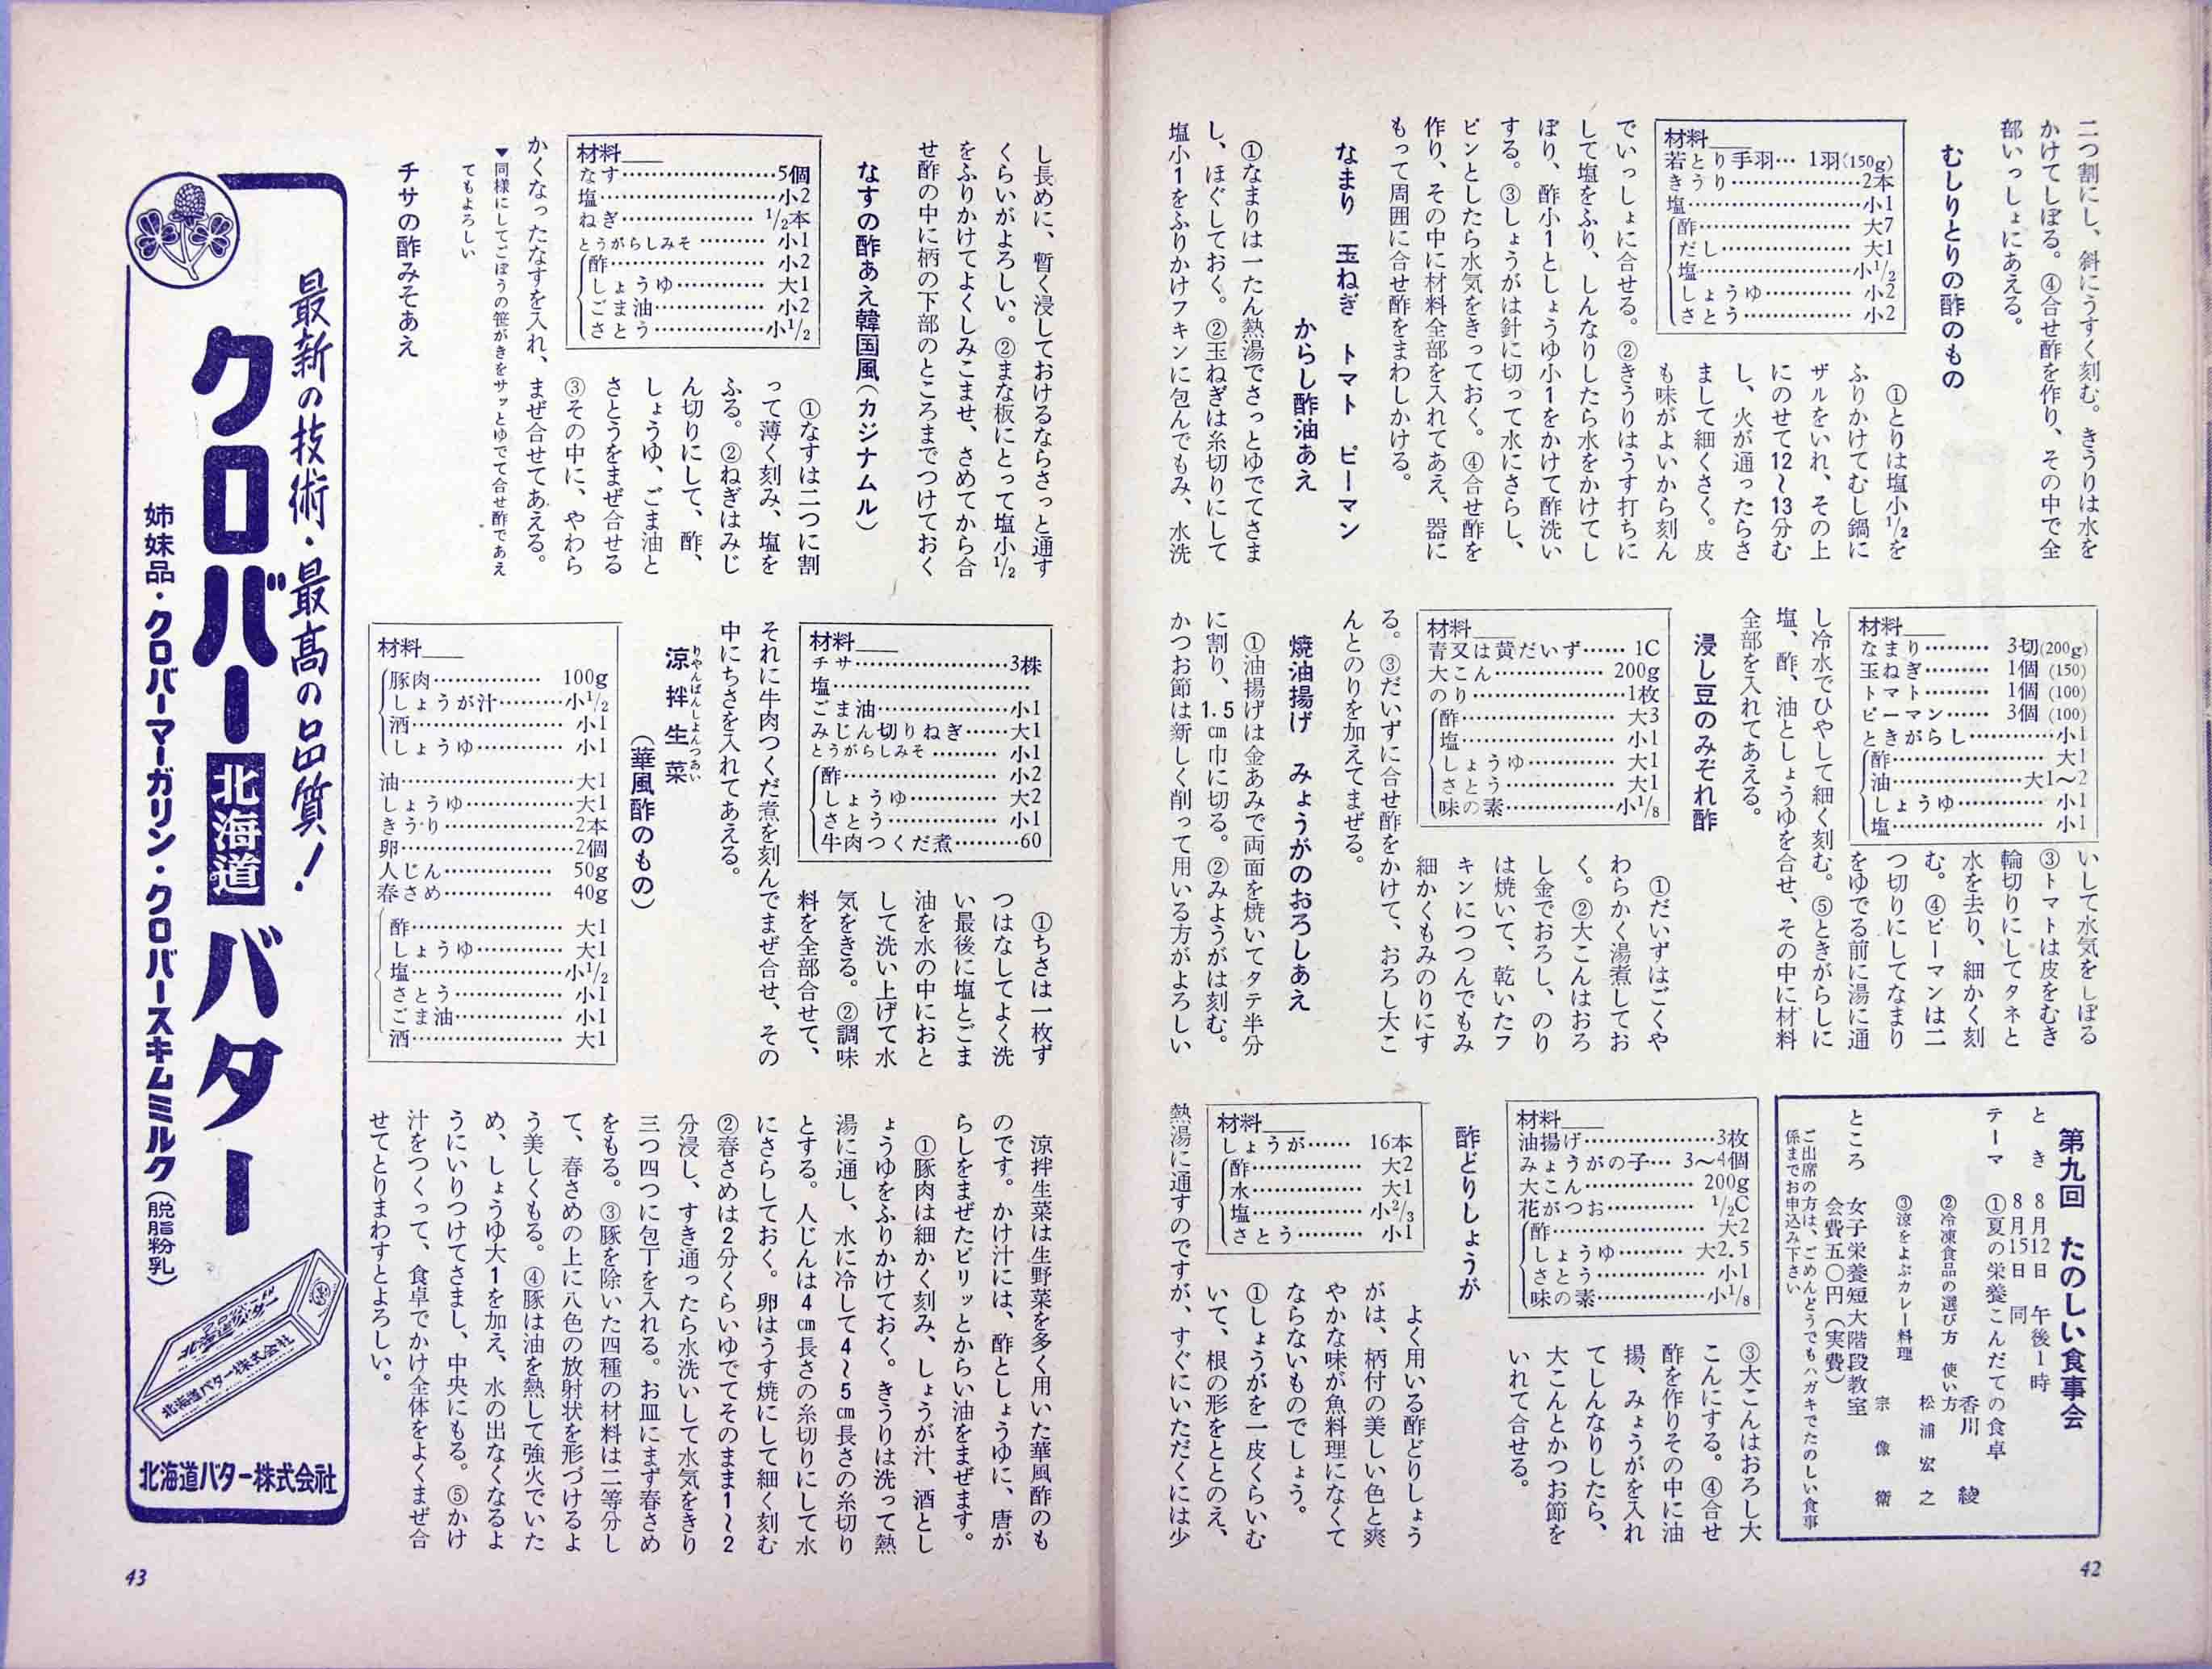 二つ割にし、斜にうすく刻む。きうりは水を
かけてしぼる。④合せ酢を作り、その中で全
部いっしょにあえる。
むしりとりの酢のもの
材料
若とり手羽… 1羽(150g)
きうり………………2本
塩…………………小1
酢………………… 大7
だし……………… 大1
塩…………………小1/2
しょうゆ………… 小2
さとう…………… 小2
①とりは塩小1/2を
ふりかけてむし鍋に
ザルをいれ、その上
にのせて12〜13分む
し、火が通ったらさ
まして細くさく。皮
も味がよいから刻ん
でいっしょに合せる。②きうりはうす打ちに
して塩をふり、しんなりしたら水をかけてし
ぼり、酢小1としょうゆ小1をかけて酢洗い
する。③しょうがは針に切って水にさらし、
ピンとしたら水気をきっておく。④合せ酢を
作り、その中に材料全部を入れてあえ、器に
もって周囲に合せ酢をまわしかける。
なまり 玉ねぎ トマト ピーマン
からし酢油あえ
①なまりは一たん熱湯でさっとゆでてさま
し、ほぐしておく。②玉ねぎは糸切りにして
塩小1をふりかけフキンに包んでもみ、水洗
材料
なまり……… 3切(200g)
玉ねぎ……… 1個 (150)
トマト……… 1個 (100)
ピーマン…… 3個 (100)
ときがらし…………小1
酢………………… 大1
油………………大1〜2
しょうゆ………… 小1
塩………………… 小1
いして水気をしぼる
③トマトは皮をむき
輪切りにしてタネと
水を去り、細かく刻
む。④ピーマンは二
つ切りにしてなまり
をゆでる前に湯に通
し冷水でひやして細く刻む。⑤ときがらしに
塩、酢、油としょうゆを合せ、その中に材料
全部を入れてあえる。
浸し豆のみぞれ酢
材料
青又は黄だいず…… 1C
大こん…………… 200g
のり…………………1枚
酢………………… 大3
塩………………… 小1
しょうゆ………… 大1
さとう…………… 大1
味の素……………小1/8
①だいずはごくや
わらかく湯煮してお
く。②大こんはおろ
し金でおろし、のり
は焼いて、乾いたフ
キンにつつんでもみ
細かくもみのりにす
る。③だいずに合せ酢をかけて、おろし大こ
んとのりを加えてまぜる。
焼油揚げ みょうがのおろしあえ
①油揚げは金あみで両面を焼いてタテ半分
に割り、1.5cm巾に切る。②みようがは刻む。
かつお節は新しく削って用いる方がよろしい
第九回 たのしい食事会
とき 8月12日 午後1時
8月15日 同
テーマ ①夏の栄養こんだての食卓
香川 綾
②冷凍食品の選び方 使い方
松浦宏之
③涼をよぶカレー料理
宗像 衛
ところ 女子栄養短大階段教室
会費五〇円(実費)
ご出席の方は、ごめんどうでもハガキでたのしい食事
係までお申込み下さい
材料
油揚げ………………3枚
みょうがの子… 3〜4個
大こん…………… 200g
花がつお………… 1/2C
酢………………… 大2
しょうゆ……… 大2.5
さとう…………… 小1
味の素……………小1/8
③大こんはおろし大
こんにする。④合せ
酢を作りその中に油
揚、みょうがを入れ
てしんなりしたら、
大こんとかつお節を
いれて合せる。
酢どりしょうが
材料
しょうが…… 16本
酢…………… 大2
水…………… 大1
塩……………小2/3
さとう……… 小1
よく用いる酢どりしょう
がは、柄付の美しい色と爽
やかな味が魚料理になくて
ならないものでしょう。
①しょうがを一皮くらいむ
いて、根の形をととのえ、
熱湯に通すのですが、すぐにいただくには少
42
し長めに、暫く浸しておけるならさっと通す
くらいがよろしい。②まな板にとって塩小1/2
をふりかけてよくしみこませ、さめてから合
せ酢の中に柄の下部のところまでつけておく
なすの酢あえ韓国風(カジナムル)
材料
なす…………………5個
塩……………………小2
ねぎ……………… 1/2本
とうがらしみそ……… 小1
酢………………… 小2
しょうゆ………… 大1
ごま油…………… 小2
さとう……………小1/2
①なすは二つに割
って薄く刻み、塩を
ふる。②ねぎはみじ
ん切りにして、酢、
しょうゆ、ごま油と
さとうをまぜ合せる
③その中に、やわら
かくなったなすを入れ、まぜ合せてあえる。
▼同様にしてごぼうの笹がきをサッとゆでて合せ酢であえ
てもよろしい
チサの酢みそあえ
材料
チサ…………………3株
塩……………………
ごま油………………小1
みじん切りねぎ……大1
とうがらしみそ……… 小1
酢………………… 小2
しょうゆ………… 大2
さとう…………… 小1
牛肉つくだ煮………60
①ちさは一枚ず
つはなしてよく洗
い最後に塩とごま
油を水の中におと
して洗い上げて水
気をきる。②調味
料を全部合せて、
それに牛肉つくだ煮を刻んでまぜ合せ、その
中にちさを入れてあえる。
涼拌生菜
りやんぱんしょんつあい
(華風酢のもの)
材料
豚肉…………… 100g
しょうが汁………小1/2
酒………………… 小1
しょうゆ………… 小1
油……………………大1
しょうゆ……………大1
きうり………………2本
卵……………………2個
人じん…………… 50g
春さめ…………… 40g
酢………………… 大1
しょうゆ………… 大1
塩…………………小1/2
さとう…………… 小1
ごま油…………… 小1
酒………………… 大1
涼拌生菜は生野菜を多く用いた華風酢のも
のです。かけ汁には、酢としょうゆに、唐が
らしをまぜたピリッとからい油をまぜます。
①豚肉は細かく刻み、しょうが汁、酒とし
ょうゆをふりかけておく。きうりは洗って熱
湯に通し、水に冷して4〜5cm長さの糸切り
とする。人じんは4cm長さの糸切りにして水
にさらしておく。卵はうす焼にして細く刻む
②春さめは2分くらいゆでてそのまま1〜2
分浸し、すき通ったら水洗いして水気をきり
三つ四つに包丁を入れる。お皿にまず春さめ
をもる。③豚を除いた四種の材料は二等分し
て、春さめの上に八色の放射状を形づけるよ
う美しくもる。④豚は油を熱して強火でいた
め、しょうゆ大1を加え、水の出なくなるよ
うにいりつけてさまし、中央にもる。⑤かけ
汁をつくって、食卓でかけ全体をよくまぜ合
せてとりまわすとよろしい。
最新の技術・最高の品質!
クロバー北海道バター
姉妹品・クロバーマーガリン・クロバースキムミルク(脱脂粉乳)
北海道バター株式会社
北海道バター株式会社
43